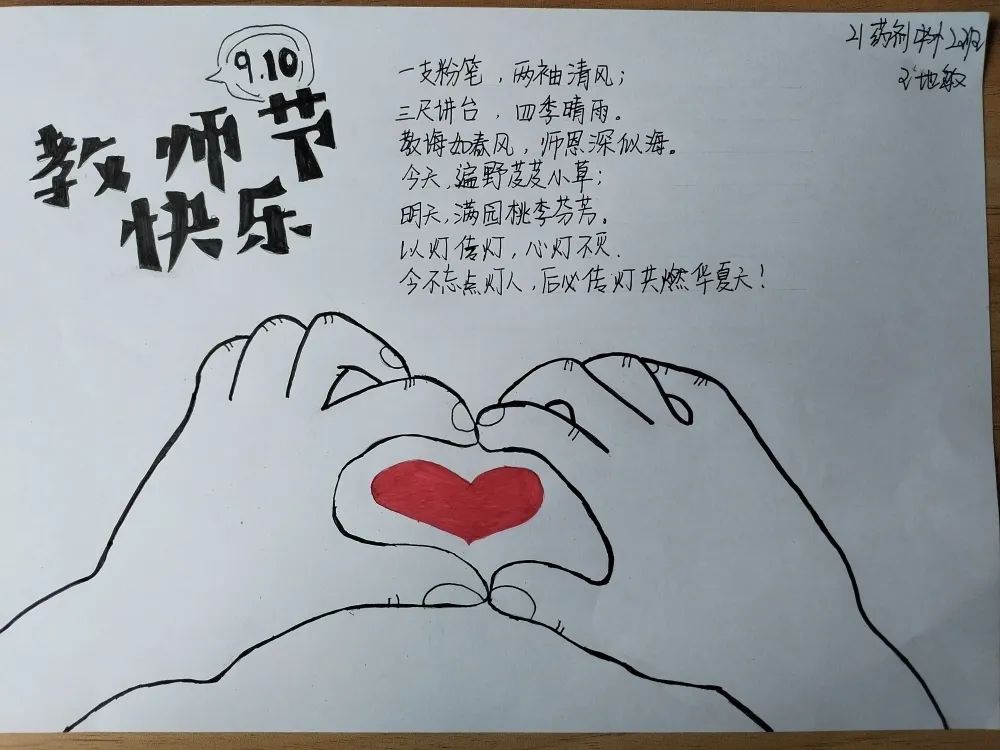 9.10
教师节
快乐
一支粉笔，两袖清风；
三尺讲台，四季晴雨。
教诲如春风，师恩深似海。
今天，遍野芨芨小草；
明天，满园桃李芬芳。
以灯传灯，心灯不灭.
今不忘点灯人，后必传灯共燃华夏天！
21药剂中外2班
地敏